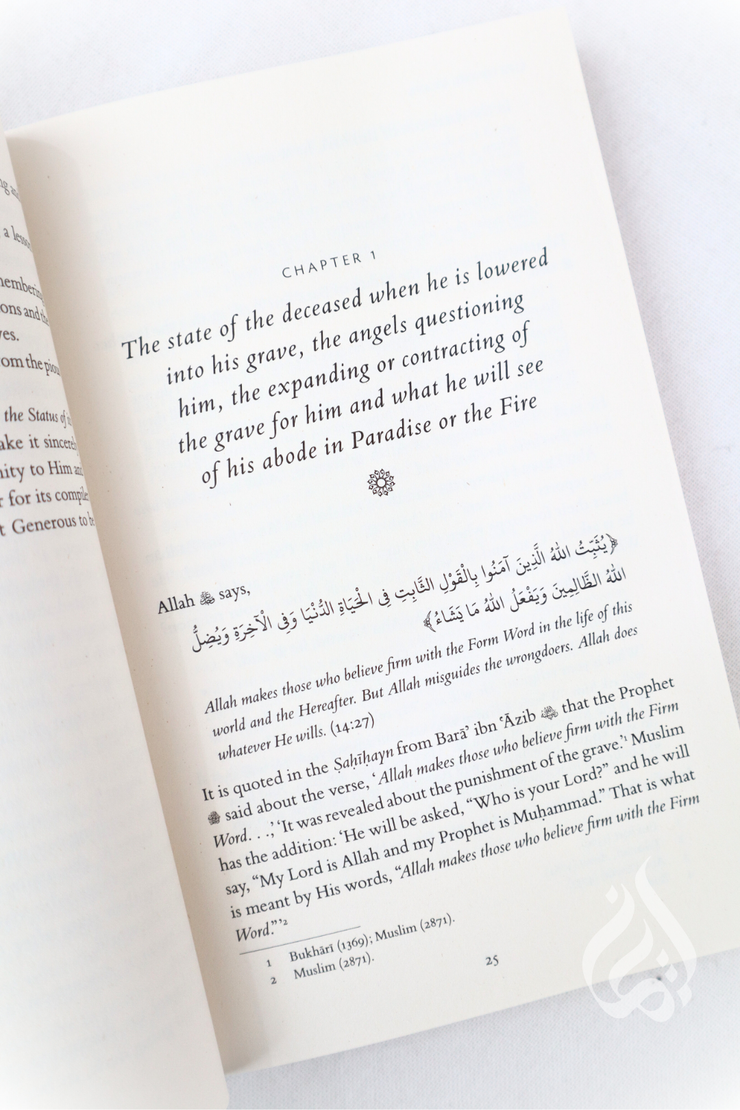 a lesson
the Status of
Generous to
CHAPTER 1
The state of the deceased when he is lowered
into his grave, the angels questioning
him, the expanding or contracting of
the grave for him and what he will see
of his abode in Paradise or the Fire
Allah ﷻ says,
﴿يُثَبِّتُ اللهُ الَّذِينَ آمَنُوا بِالْقَوْلِ الثَّابِتِ فِى الْحَيَاةِ الدُّنْيَا وَفِى الْآخِرَةِ وَيُضِلُّ
اللهُ الظَّالِمِينَ وَيَفْعَلُ اللهُ مَا يَشَاءُ﴾
Allah makes those who believe firm with the Form Word in the life of this
world and the Hereafter. But Allah misguides the wrongdoers. Allah does
whatever He wills. (14:27)
It is quoted in the Ṣaḥīḥayn from Barā’ ibn ‘Āzib that the Prophet
ﷺ said about the verse, ‘Allah makes those who believe firm with the Firm
Word. . .,’ ‘It was revealed about the punishment of the grave.’¹ Muslim
has the addition: ‘He will be asked, “Who is your Lord?” and he will
say, “My Lord is Allah and my Prophet is Muḥammad.” That is what
is meant by His words, “Allah makes those who believe firm with the Firm
Word.”’²
1 Bukhārī (1369); Muslim (2871).
2 Muslim (2871).
25